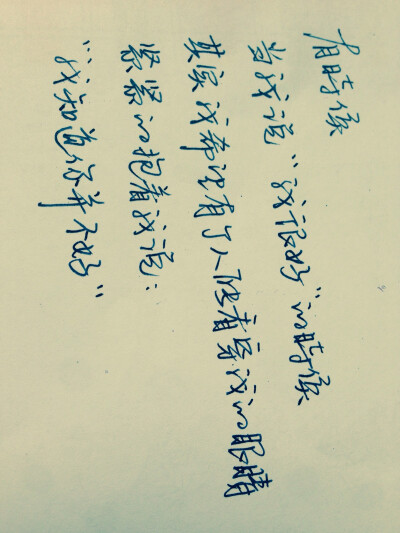 有時候
当我说“我很好”的時候
其实我希望有个人能看穿我的眼睛
紧紧的抱着我说：
“我知道你并不好”